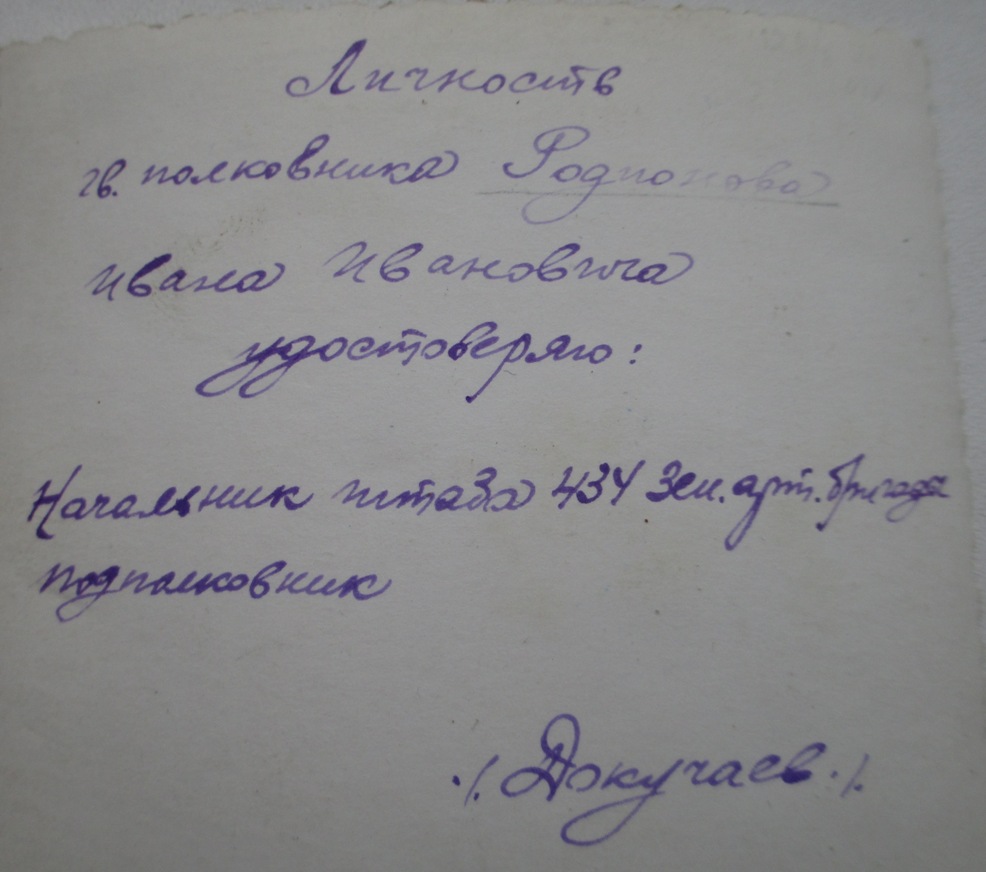 Личность
гв. полковника Родионова
Ивана Ивановича
удостоверяю:
Начальник штаба 434 Зен. арт. бригады
подполковник
./. Докучаев ./.